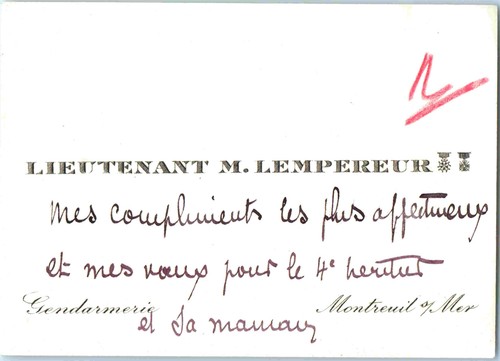 LIEUTENANT M. LEMPEREUR
Mes compliments les plus affectueux
et mes vœux pour le 4e heritier
Gendarmerie Montreuil s/Mer
et sa maman